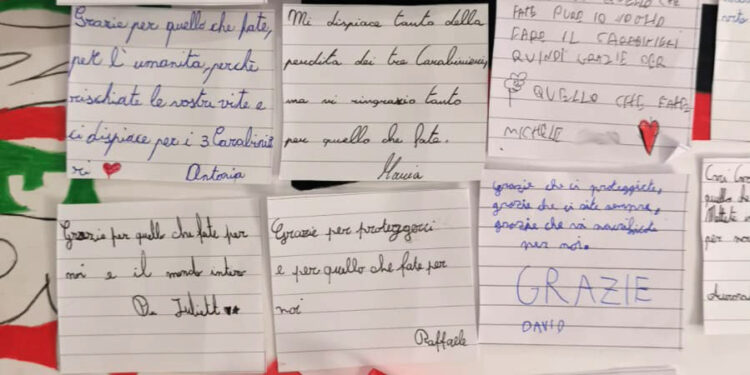 Grazie per quello che fate,
per l'umanità, perchè
rischiate le vostre vite e
ci dispiace per i 3 Carabinie
ri
Antonia
Mi dispiace tanto della
perdita dei tre Carabinieri,
ma vi ringrazio tanto
per quello che fate.
FATE PURE IO VOGLIO
FARE IL CARABINIERI
QUINDI GRAZIE PER
QUELLO CHE FATE
MICHELE
Grazie per quello che fate per
noi e il mondo intero
Da Juliett
Grazie per proteggerci
e per quello che fate per
noi
Raffaele
Grazie che ci proteggete,
grazie che ci siete sempre,
grazie che vi sacrificate
per noi.
GRAZIE
DAVID
quello che
per no
Aurora